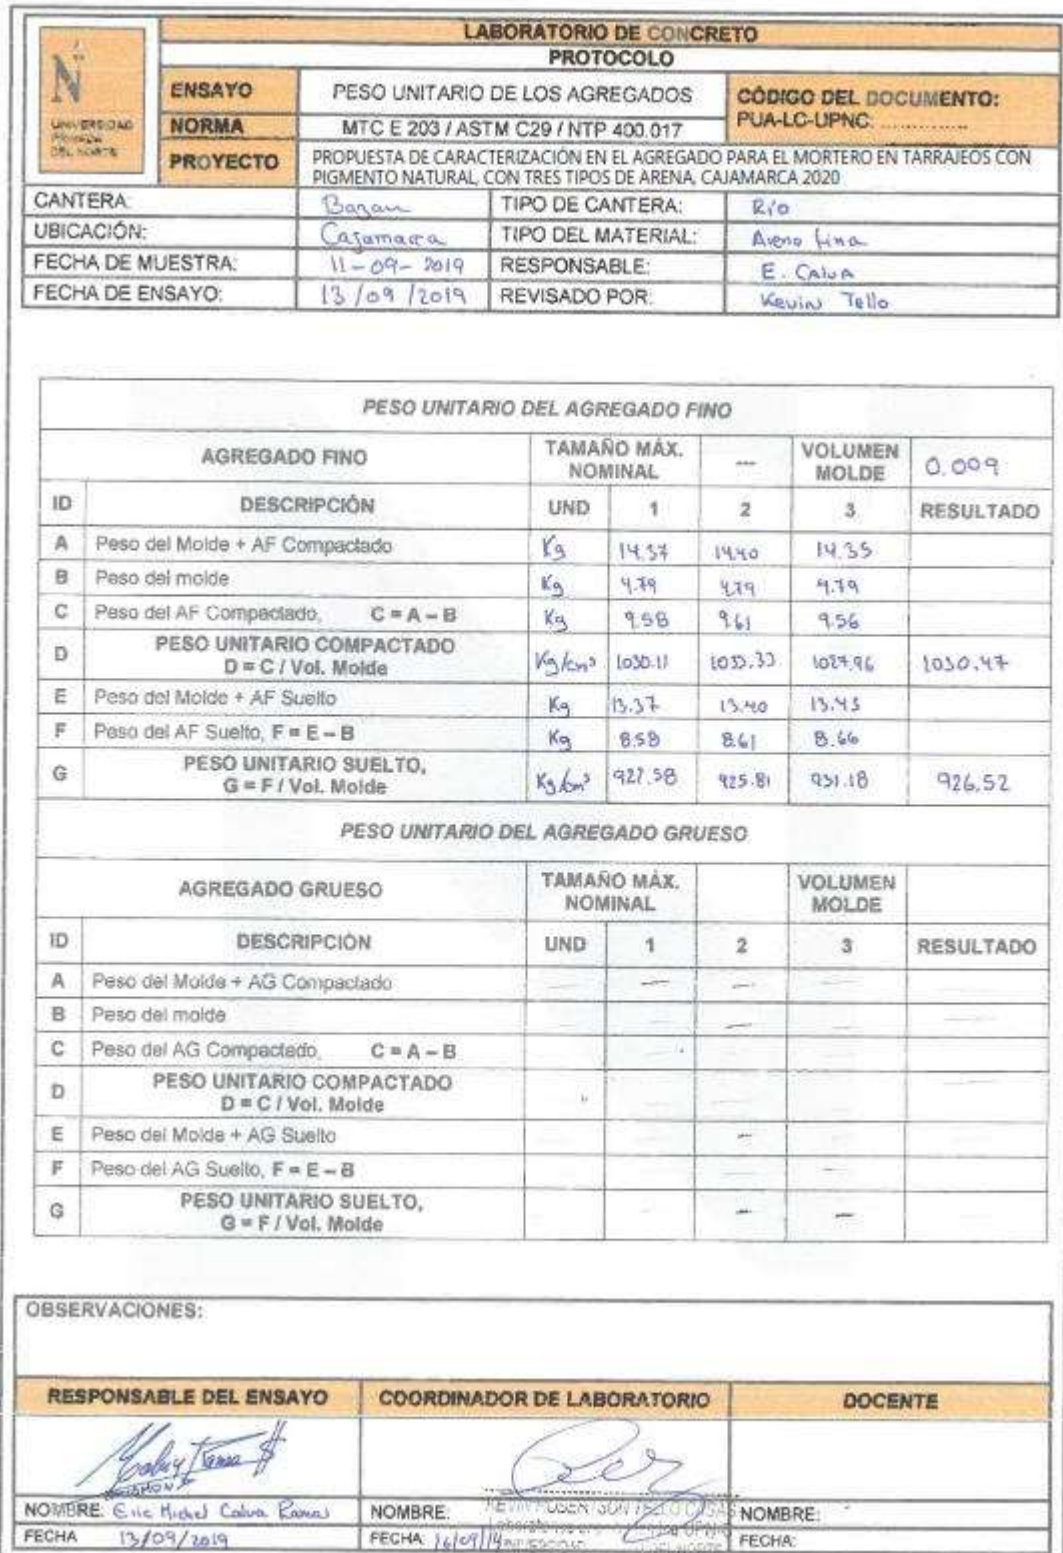 LABORATORIO DE CONCRETO
PROTOCOLO
N
UNIVERSIDAD
PRIVADA
DEL NORTE
ENSAYO PESO UNITARIO DE LOS AGREGADOS CÓDIGO DEL DOCUMENTO:
NORMA MTC E 203 / ASTM C29 / NTP 400.017 PUA-LC-UPNC: ..............
PROYECTO PROPUESTA DE CARACTERIZACIÓN EN EL AGREGADO PARA EL MORTERO EN TARRAJEOS CON
PIGMENTO NATURAL, CON TRES TIPOS DE ARENA, CAJAMARCA 2020
CANTERA: Bazan TIPO DE CANTERA: Río
UBICACIÓN: Cajamarca TIPO DEL MATERIAL: Arena fina
FECHA DE MUESTRA: 11-09-2019 RESPONSABLE: E. Calva
FECHA DE ENSAYO: 13/09/2019 REVISADO POR: Kevin Tello
PESO UNITARIO DEL AGREGADO FINO
AGREGADO FINO TAMAÑO MÁX. NOMINAL --- VOLUMEN MOLDE 0.009
ID DESCRIPCIÓN UND 1 2 3 RESULTADO
A Peso del Molde + AF Compactado Kg 14.37 14.40 14.35
B Peso del molde Kg 4.79 4.79 4.79
C Peso del AF Compactado, C = A – B Kg 9.58 9.61 9.56
D PESO UNITARIO COMPACTADO
D = C / Vol. Molde Kg/cm³ 1030.11 1033.33 1027.96 1030.47
E Peso del Molde + AF Suelto Kg 13.37 13.40 13.45
F Peso del AF Suelto, F = E – B Kg 8.58 8.61 8.66
G PESO UNITARIO SUELTO,
G = F / Vol. Molde Kg/cm³ 922.58 925.81 931.18 926.52
PESO UNITARIO DEL AGREGADO GRUESO
AGREGADO GRUESO TAMAÑO MÁX. NOMINAL VOLUMEN MOLDE
ID DESCRIPCIÓN UND 1 2 3 RESULTADO
A Peso del Molde + AG Compactado
B Peso del molde
C Peso del AG Compactado, C = A – B
D PESO UNITARIO COMPACTADO
D = C / Vol. Molde
E Peso del Molde + AG Suelto
F Peso del AG Suelto, F = E – B
G PESO UNITARIO SUELTO,
G = F / Vol. Molde
OBSERVACIONES:
RESPONSABLE DEL ENSAYO COORDINADOR DE LABORATORIO DOCENTE
NOMBRE: Eric Michel Calva Ramos NOMBRE: KEVIN NOMBRE:
FECHA 13/09/2019 FECHA: 16/09/19 FECHA: